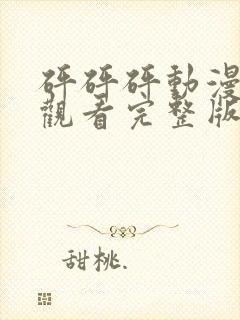 砰砰砰動漫
觀看完整版
甜桃.